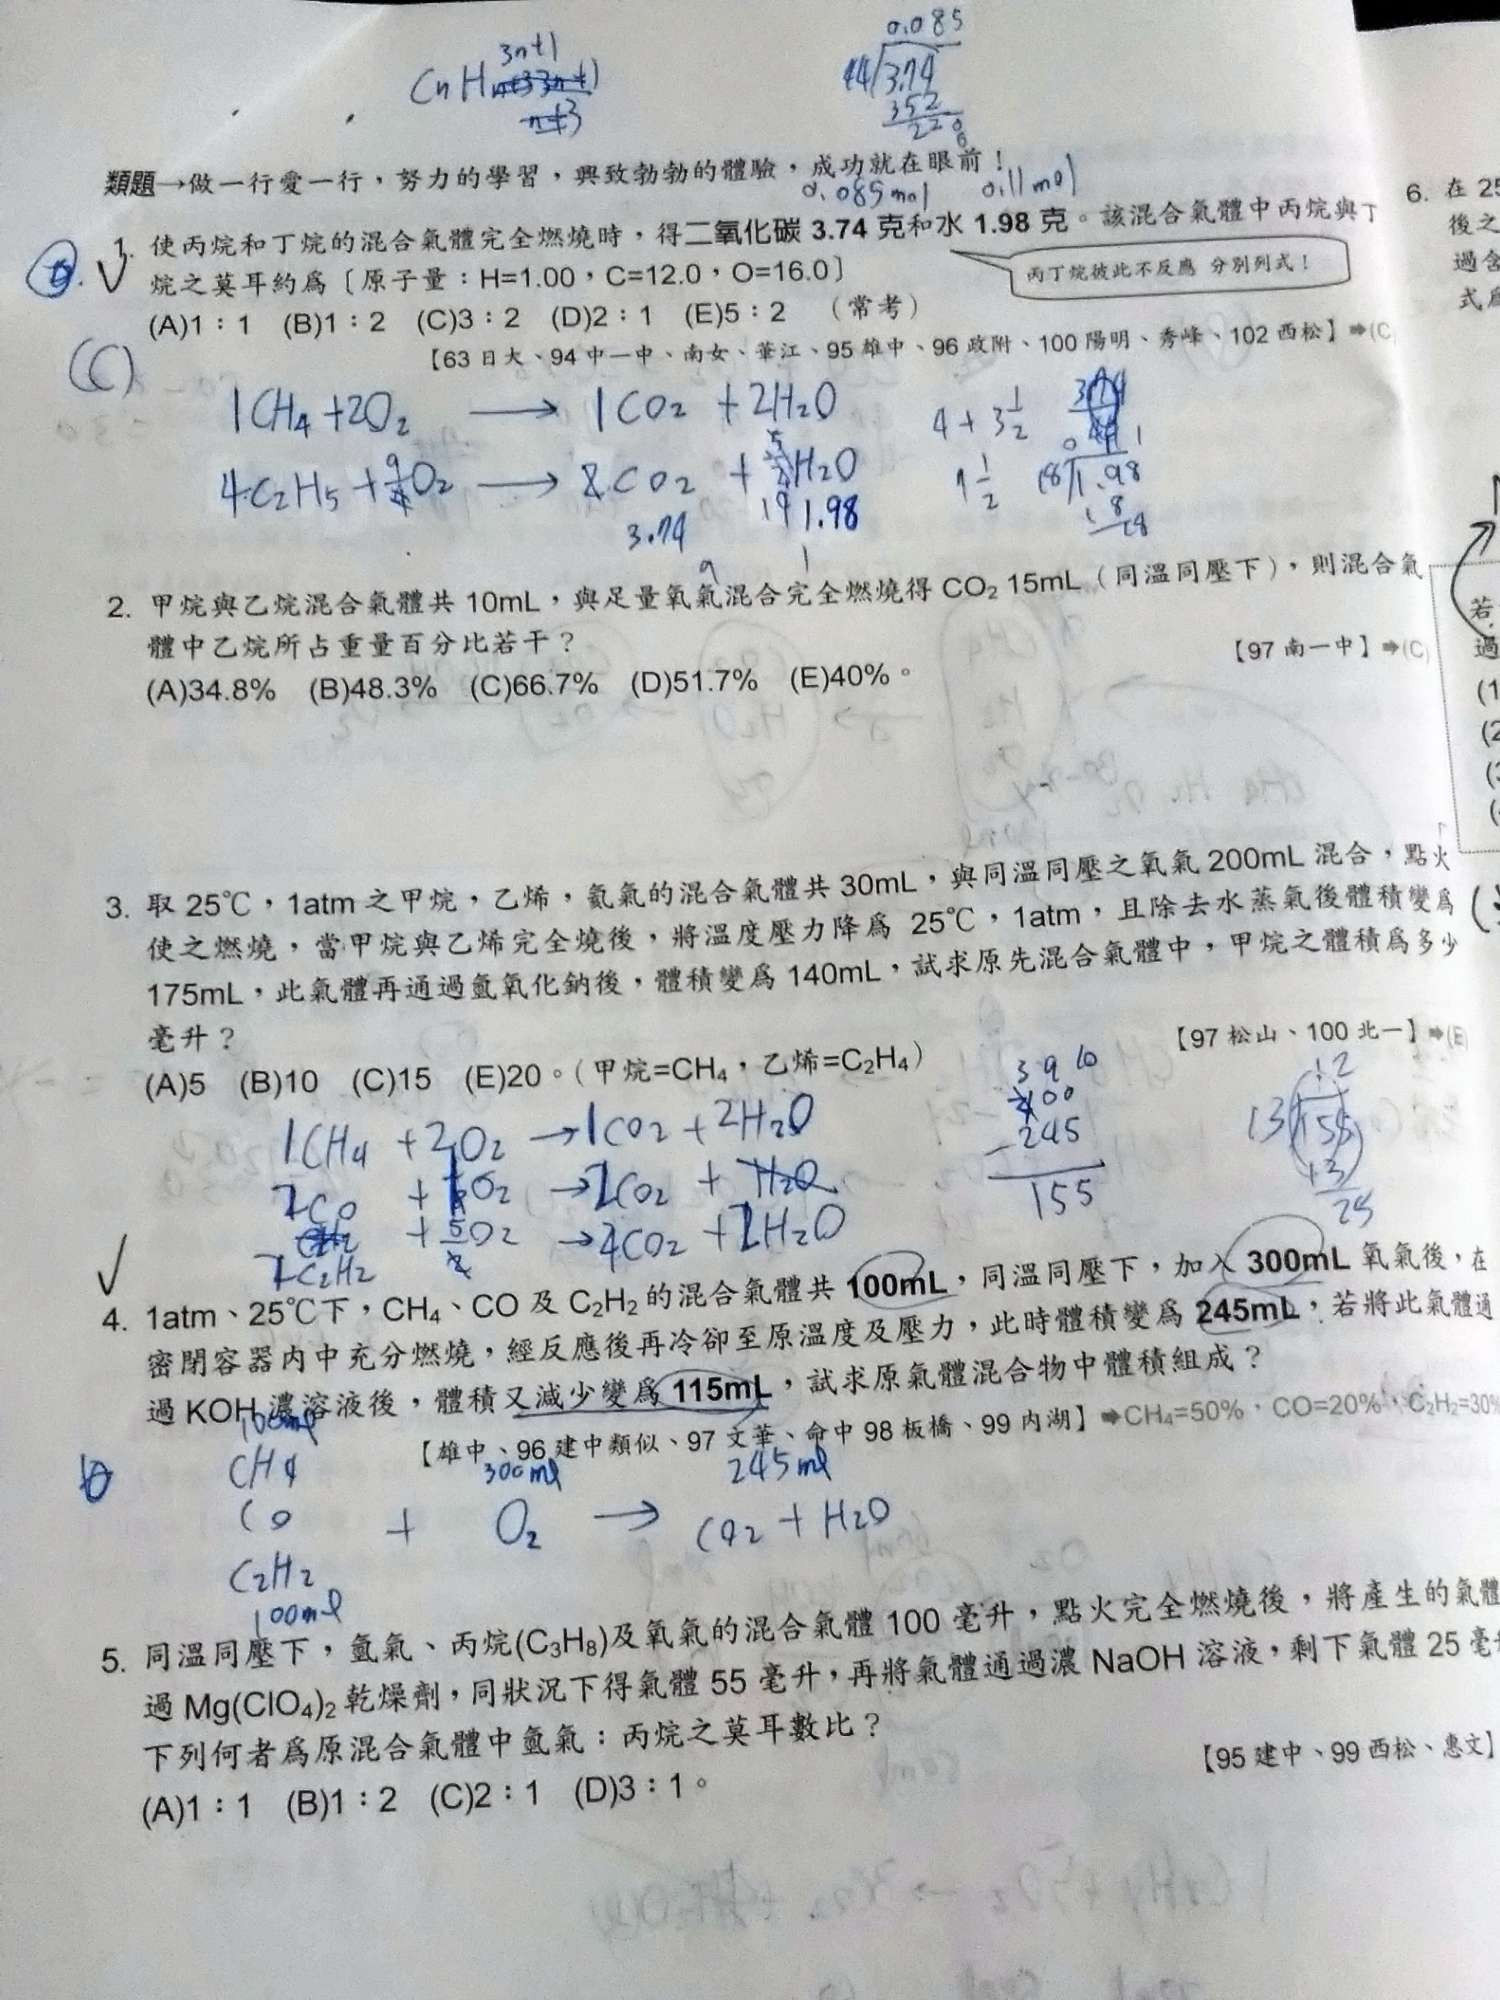 3n+1
CnH
0.085
44√3.74
352
220
類題→做一行愛一行，努力的學習，興致勃勃的體驗，成功就在眼前！
0.085mol 0.11mol
1. 使丙烷和丁烷的混合氣體完全燃燒時，得二氧化碳 3.74 克和水 1.98 克。該混合氣體中丙烷與丁
烷之莫耳約為〔原子量：H=1.00，C=12.0，O=16.0〕
丙丁烷彼此不反應 分別列式！
(A)1：1 (B)1：2 (C)3：2 (D)2：1 (E)5：2 （常考）
【63 日大、94 中一中、南女、華江、95 雄中、96 政附、100 陽明、秀峰、102 西松】➡(C
(C)
1CH4+2O2 → 1CO2 +2H2O
4+3 1/2
C2H5 + O2 → CO2 + H2O
18√1.98
18
18
3.74 1.98
2. 甲烷與乙烷混合氣體共 10mL，與足量氧氣混合完全燃燒得 CO2 15mL（同溫同壓下），則混合氣
體中乙烷所占重量百分比若干？
【97 南一中】➡(C)
(A)34.8% (B)48.3% (C)66.7% (D)51.7% (E)40%。
3. 取 25℃，1atm 之甲烷，乙烯，氦氣的混合氣體共 30mL，與同溫同壓之氧氣 200mL 混合，點火
使之燃燒，當甲烷與乙烯完全燒後，將溫度壓力降為 25℃，1atm，且除去水蒸氣後體積變為
175mL，此氣體再通過氫氧化鈉後，體積變為 140mL，試求原先混合氣體中，甲烷之體積為多少
毫升？
【97 松山、100 北一】➡(E)
(A)5 (B)10 (C)15 (E)20。（甲烷=CH4，乙烯=C2H4）
3 9 10
400
-245
155
1CH4 +2O2 →1CO2+2H2O
2CO + O2 →2CO2 +
C2H2 + 5/2 O2 → CO2 + H2O
4. 1atm、25℃下，CH4、CO 及 C2H2 的混合氣體共 100mL，同溫同壓下，加入 300mL 氧氣後，在
密閉容器內中充分燃燒，經反應後再冷卻至原溫度及壓力，此時體積變為 245mL，若將此氣體通
過 KOH 濃溶液後，體積又減少變為 115mL，試求原氣體混合物中體積組成？
【雄中、96 建中類似、97 文華、命中 98 板橋、99 內湖】➡CH4=50%，CO=20%，C2H2=30%
100ml
300ml 245ml
CH4
CO + O2 → CO2 + H2O
C2H2
100ml
5. 同溫同壓下，氫氣、丙烷(C3H8)及氧氣的混合氣體 100 毫升，點火完全燃燒後，將產生的氣體
過 Mg(ClO4)2 乾燥劑，同狀況下得氣體 55 毫升，再將氣體通過濃 NaOH 溶液，剩下氣體 25 毫升
下列何者為原混合氣體中氫氣：丙烷之莫耳數比？
【95 建中、99 西松、惠文】
(A)1：1 (B)1：2 (C)2：1 (D)3：1。
6. 在 25
後之
過含
若
過
(1
(2